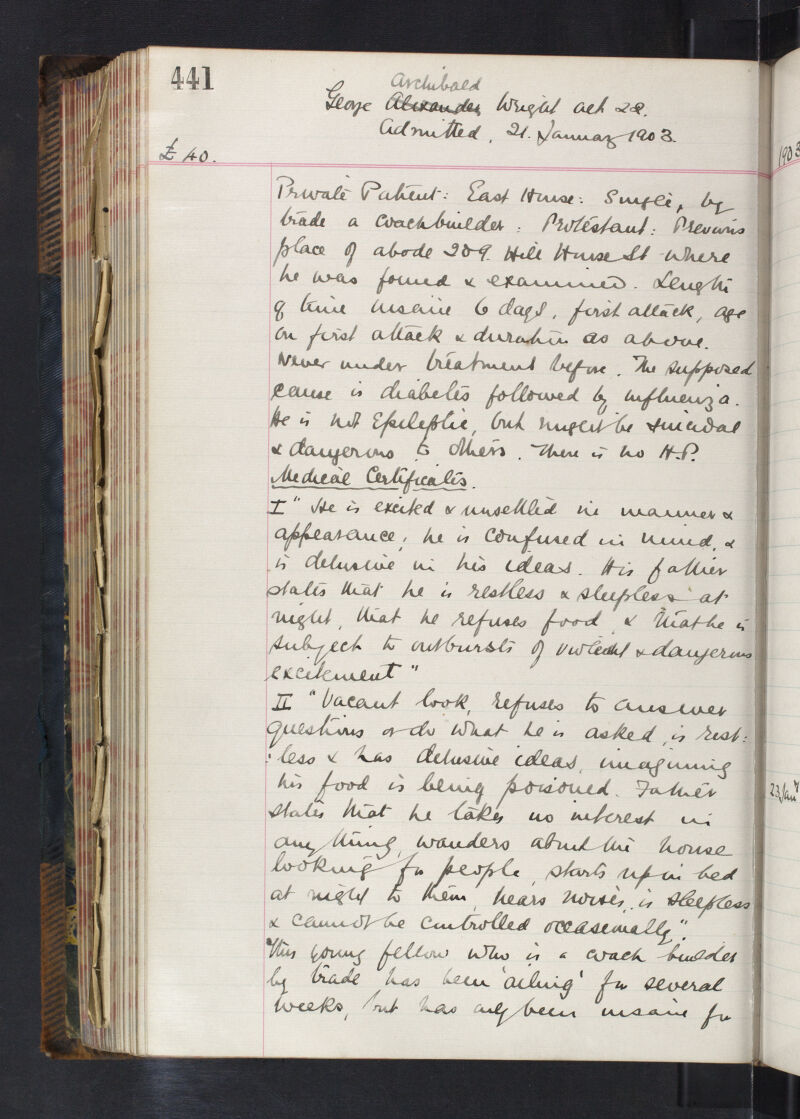 441
Archibald
George Alexander Wright aet 28.
Admitted, 21. January 1903.
£40.
1903
Private Patient: East House: Single, by
trade a coachbuilder: Protestant: Previous
place of abode 209 Hill House St where
he was found & examined. Lenght
of time insane 6 days, first attack, age
on first attack & duration as above.
Never under treatment before. The supposed
cause is diabetes followed by influenza.
He is not Epileptic, but might be suicidal
& dangerous to others. There is no H.P.
Medical Certificates.
I "He is excited & unsettled in manner &
appearance; he is confused in mind, &
is delusive in his ideas. His father
states that he is restless & sleepless at
night, that he refuses food, & that he is
subject to outbursts of violent & dangerous
excitement"
II "Vacant look, refuses to answer
questions or do what he is asked, is rest:
:less & has delusive ideas, imagining
his food is being poisoned. Father
23 Jany
states that he takes no interest in
any thing, wanders about the house
looking for people, starts up in bed
at night to them, hears noises, is sleepless
& cannot be controlled occasionally".
This young fellow who is a coach builder
by trade has been 'ailing' for several
weeks, but has only been insane for